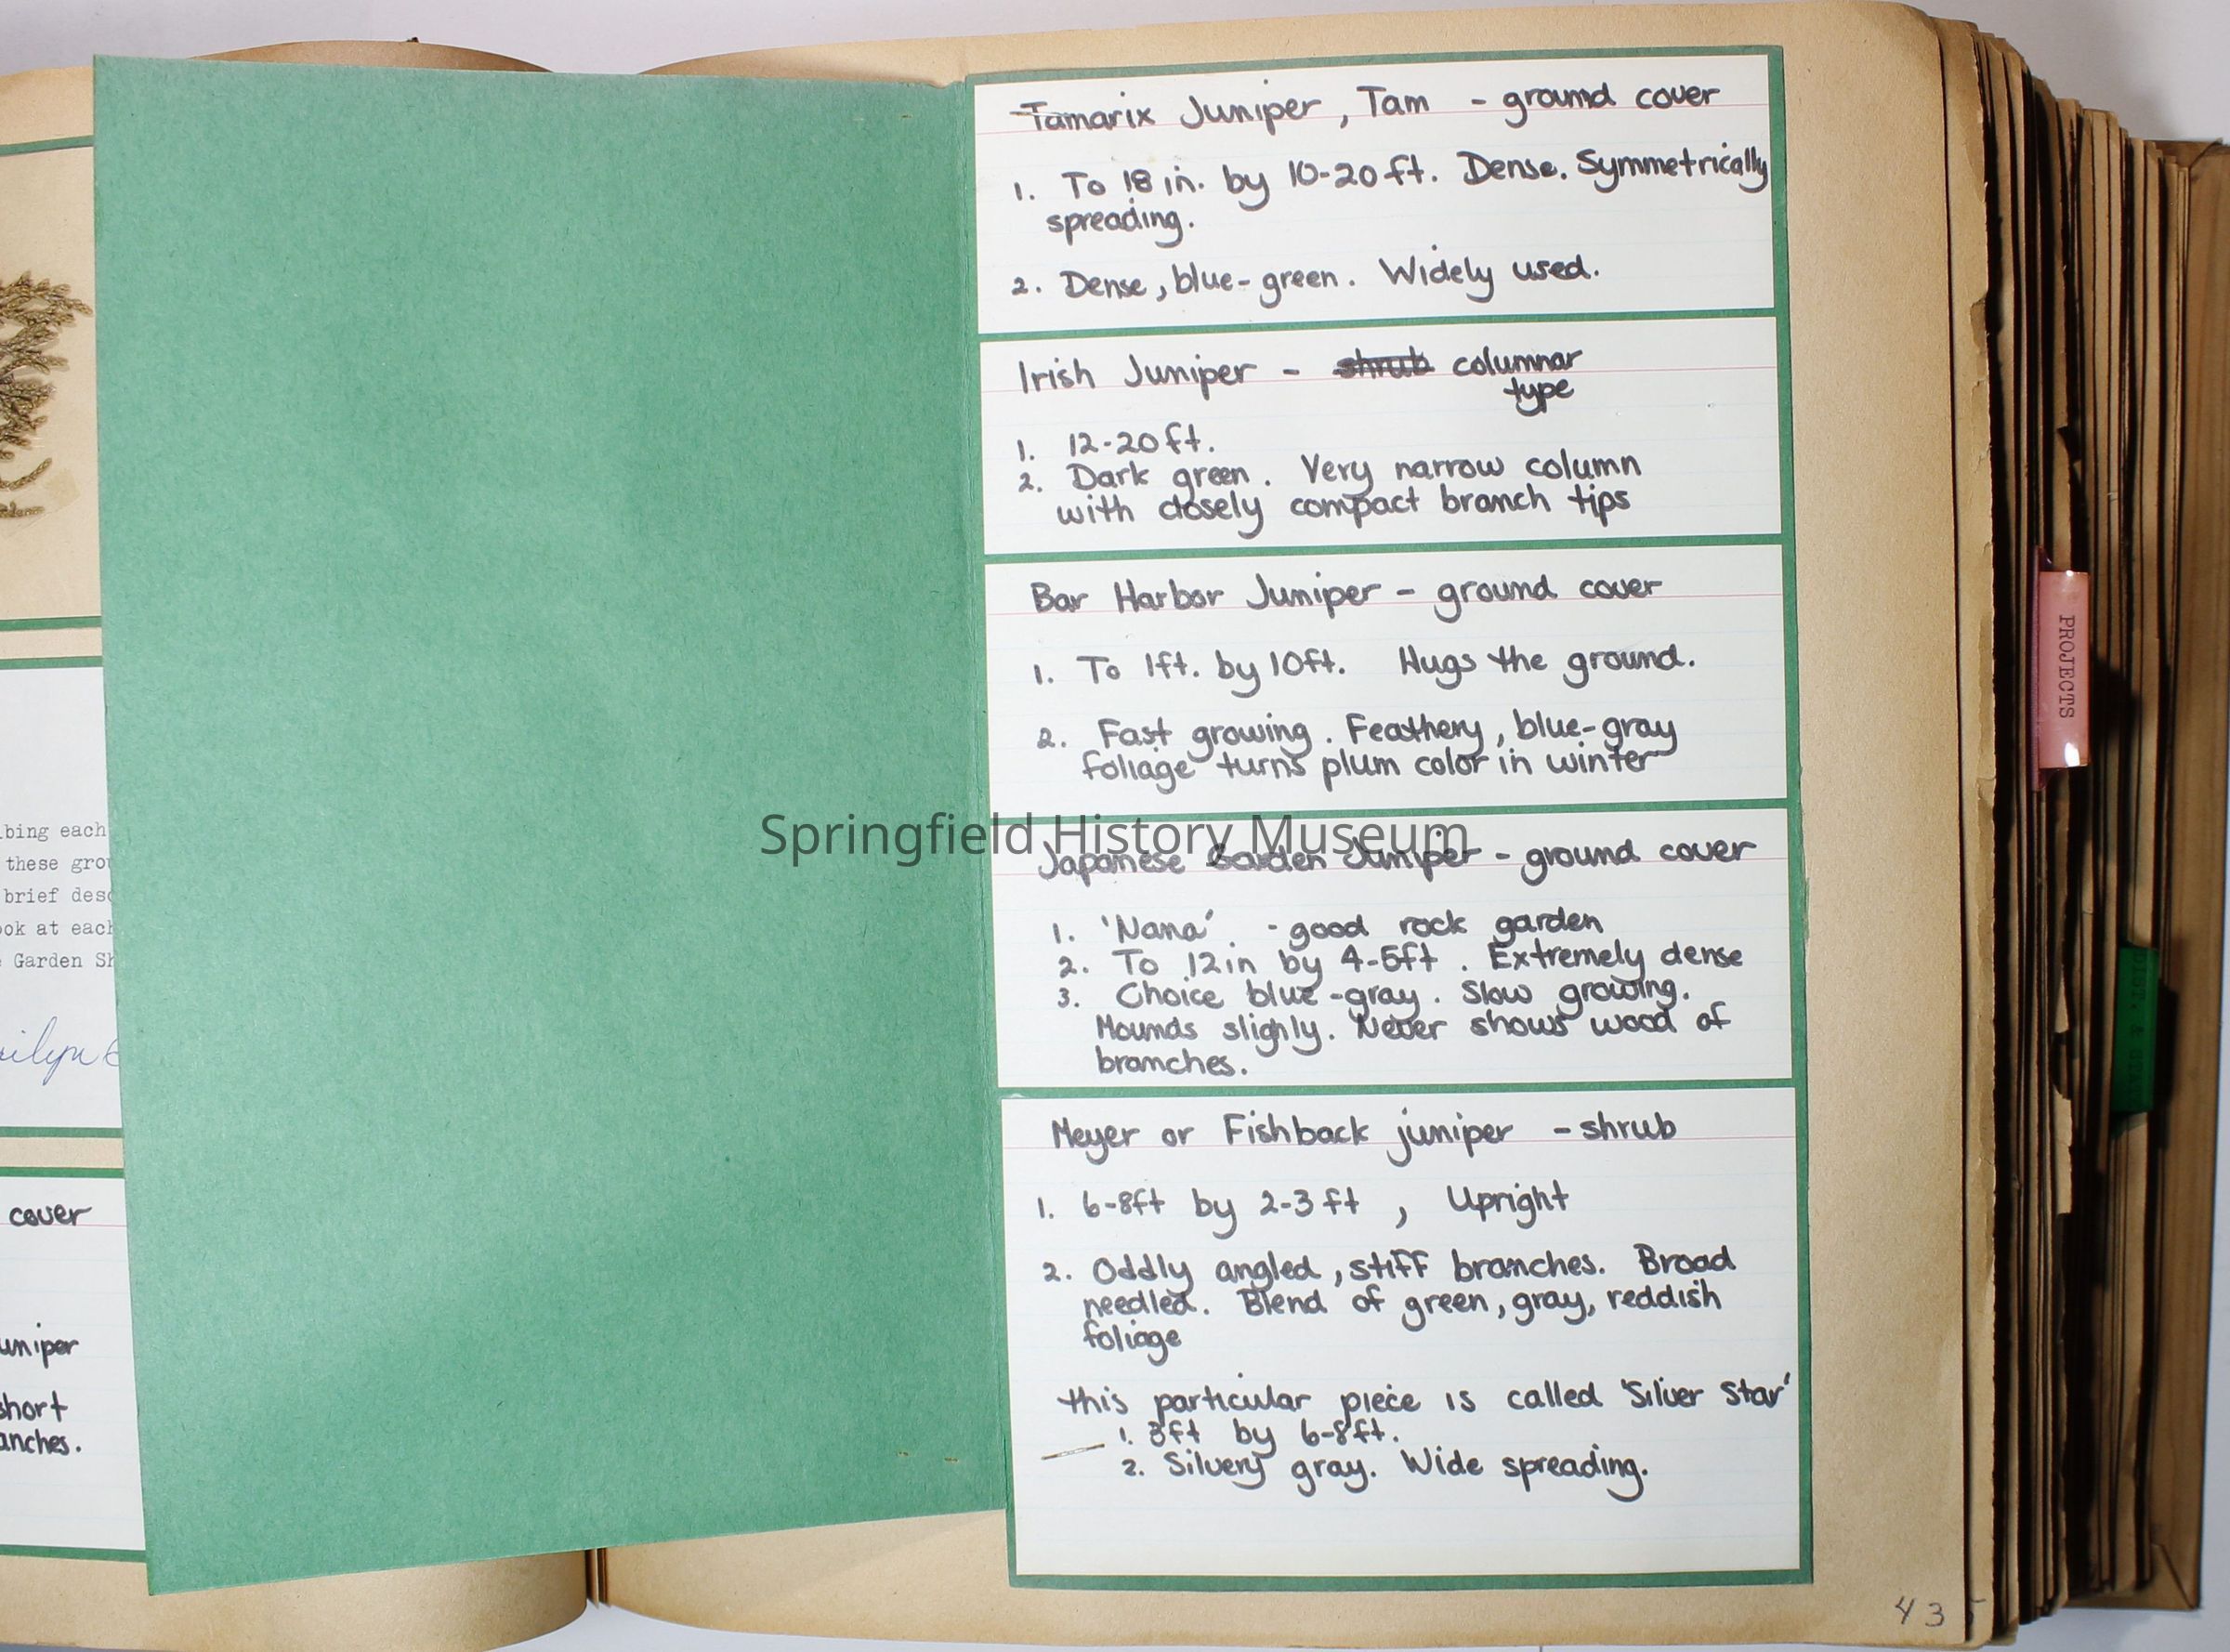 Tamarix Juniper, Tam - ground cover
1. To 18 in. by 10-20 ft. Dense. Symmetrically
spreading.
2. Dense, blue-green. Widely used.
Irish Juniper - shrub columnar
type
1. 12-20 ft.
2. Dark green. Very narrow column
with closely compact branch tips
Bar Harbor Juniper - ground cover
1. To 1ft. by 10ft. Hugs the ground.
2. Fast growing. Feathery, blue-gray
foliage turns plum color in winter
Springfield History Museum
Japanese Garden Juniper - ground cover
1. 'Nana' - good rock garden
2. To 12in by 4-5ft. Extremely dense
3. Choice blue-gray. Slow growing.
Mounds slighly. Never shows wood of
branches.
Meyer or Fishback juniper - shrub
1. 6-8ft by 2-3 ft, Upright
2. Oddly angled, stiff branches. Broad
needled. Blend of green, gray, reddish
foliage
this particular piece is called 'Silver Star'
1. 3ft by 6-8ft.
2. Silvery gray. Wide spreading.
bing each
these
brief
ook at each
Garden
cover
uniper
short
anches.
PROJECTS
43